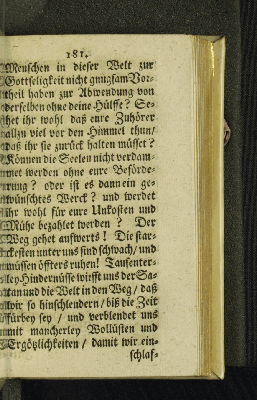 181.
Menschen in dieser Welt zur
Gottseligkeit nicht gnugsam Vor-
theil haben zur Abwendung von
derselben ohne deine Hülffe? Se-
het ihr wohl daß eure Zuhörer
allzu viel vor den Himmel thun/
daß ihr sie zurück halten müsset?
Können die Seelen nicht verdam-
met werden ohne eure Beförde-
rung? oder ist es dann ein ge-
wünschtes Werck? und werdet
ihr wohl für eure Unkosten und
Mühe bezahlet werden? Der
Weg gehet aufwerts! Die stär-
ckesten unter uns sind schwach/ und
müssen öffters ruhen! Tausenter-
ley Hindernüsse wirfft uns der Sa-
tan und die Welt in den Weg/ daß
wir so hinschlendern/ biß die Zeit
fürbey sey/ und verblendet uns
mit mancherley Wollüsten und
Ergözlichkeiten/ damit wir ein-
schlaf-